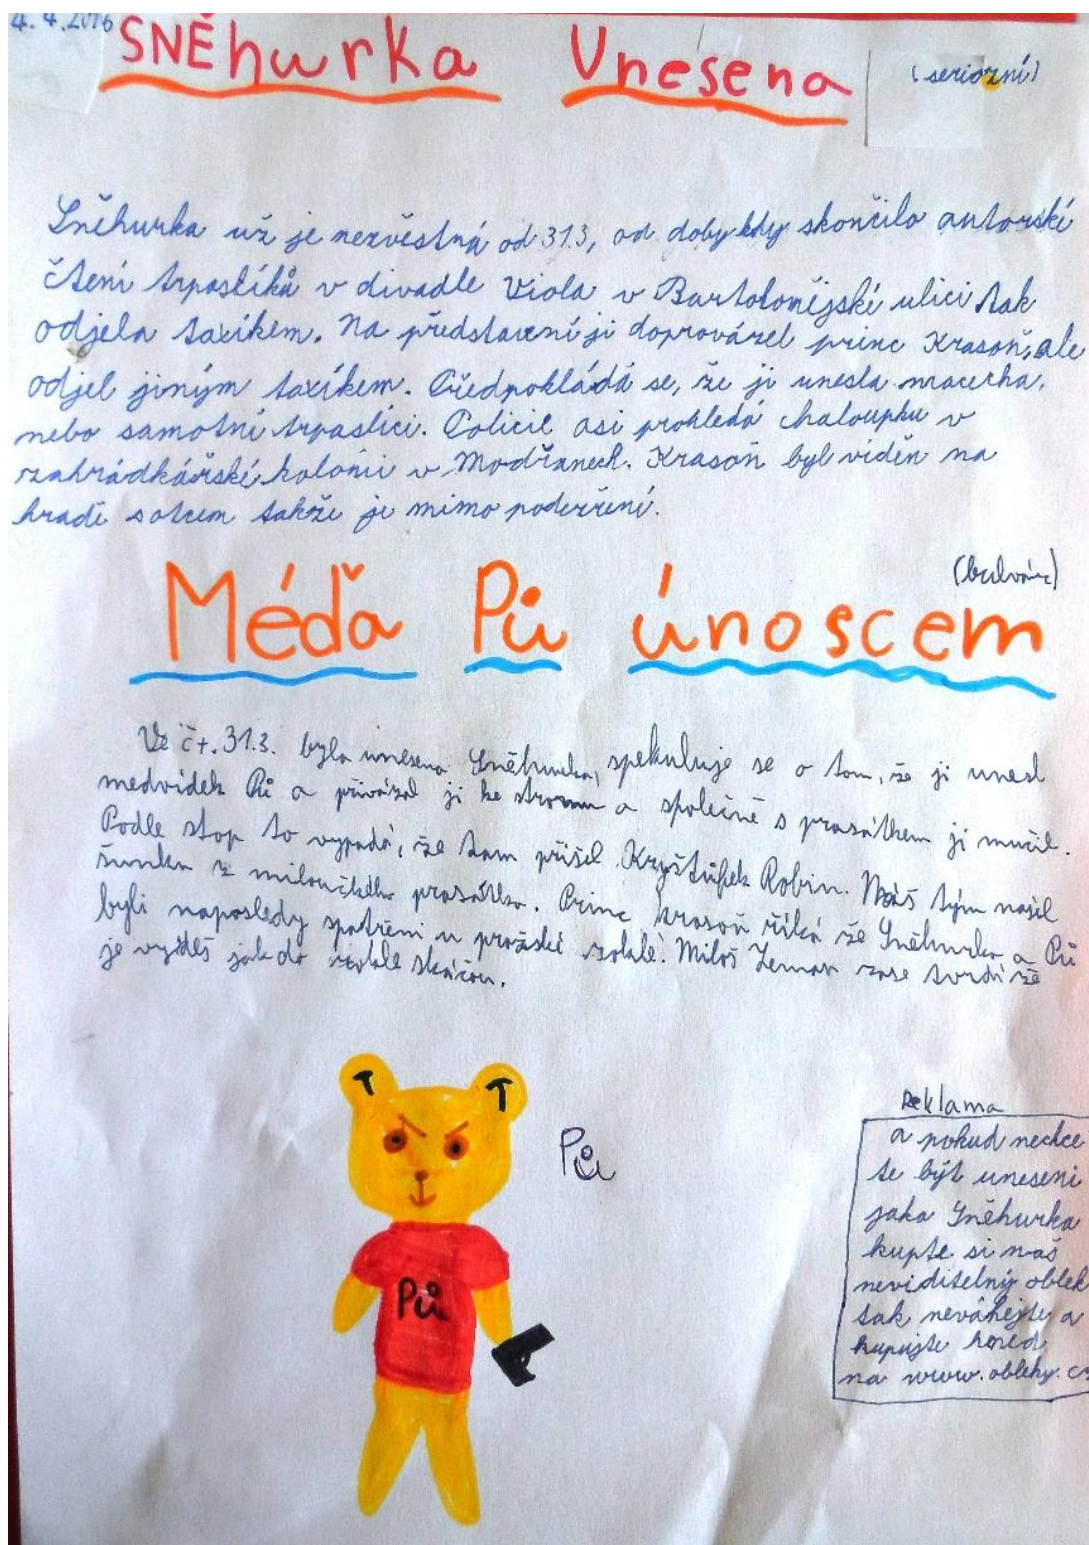 4.4.2016
SNĚhurka Unesena
(seriozní)
Sněhurka už je nezvěstná od 31.3, od doby kdy skončilo autorské
čtení trpaslíků v divadle Viola v Bartolomějské ulici tak
odjela taxíkem. Na představení ji doprovázel princ Krasoň, ale
odjel jiným taxíkem. Předpokládá se, že ji unesla macecha,
nebo samotní trpaslíci. Policie asi prohledá chaloupku v
zahrádkářské kolonii v Modřanech. Krasoň byl viděn na
hradě s otcem takže je mimo podezření.
(bulvár)
Méďa Pů únoscem
Ve čt. 31.3. byla unesena Sněhurka, spekuluje se o tom, že ji unesl
medvídek Pů a přivázal ji ke stromu a společně s prasátkem ji mučil.
Podle stop to vypadá, že tam přišel Kryštůfek Robin. Náš tým našel
šunku z miloučkého prasátka. Princ Krasoň říká že Sněhurka a Pů
byli naposledy spatřeni u pražské zoo Miloš Zeman zase tvrdí že
je jak do skáčou.
Pů
Pů
Reklama
a pokud nechce
te být uneseni
jako Sněhurka
kupte si náš
neviditelný oblek
tak neváhejte a
kupujte hned
na www.obleky.cz